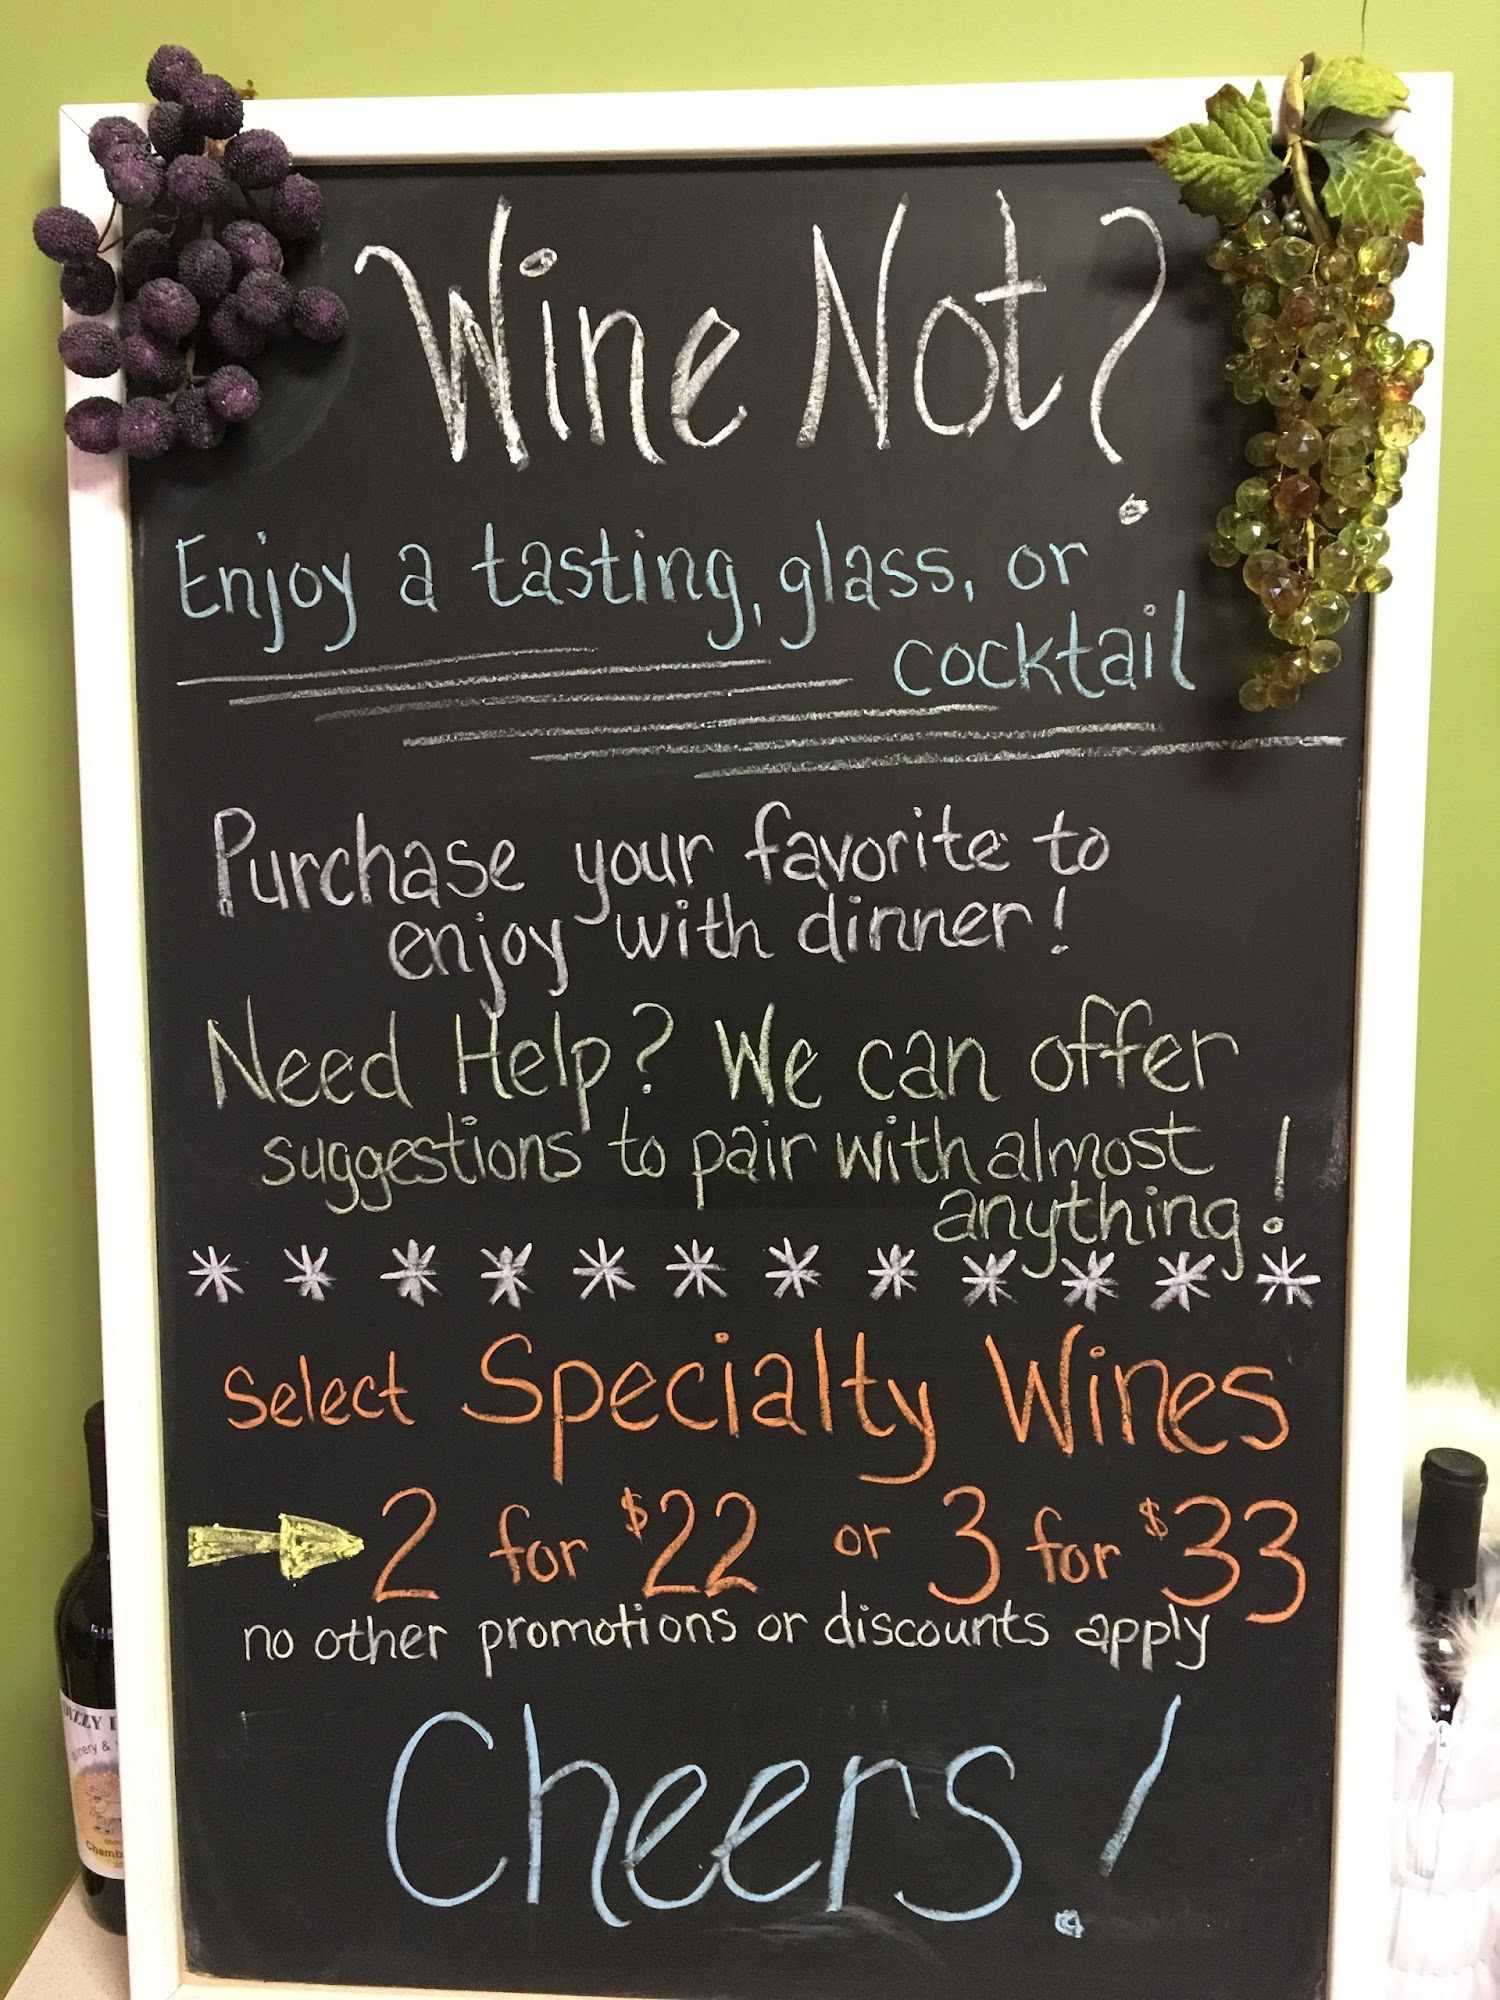 Wine Not?
Enjoy a tasting, glass, or
cocktail
Purchase your favorite to
enjoy with dinner!
Need Help? We can offer
suggestions to pair with almost
anything!
* * * * * * * * * * * *
Select Specialty Wines
2 for $22 or 3 for $33
no other promotions or discounts apply
Cheers!
DIZZY